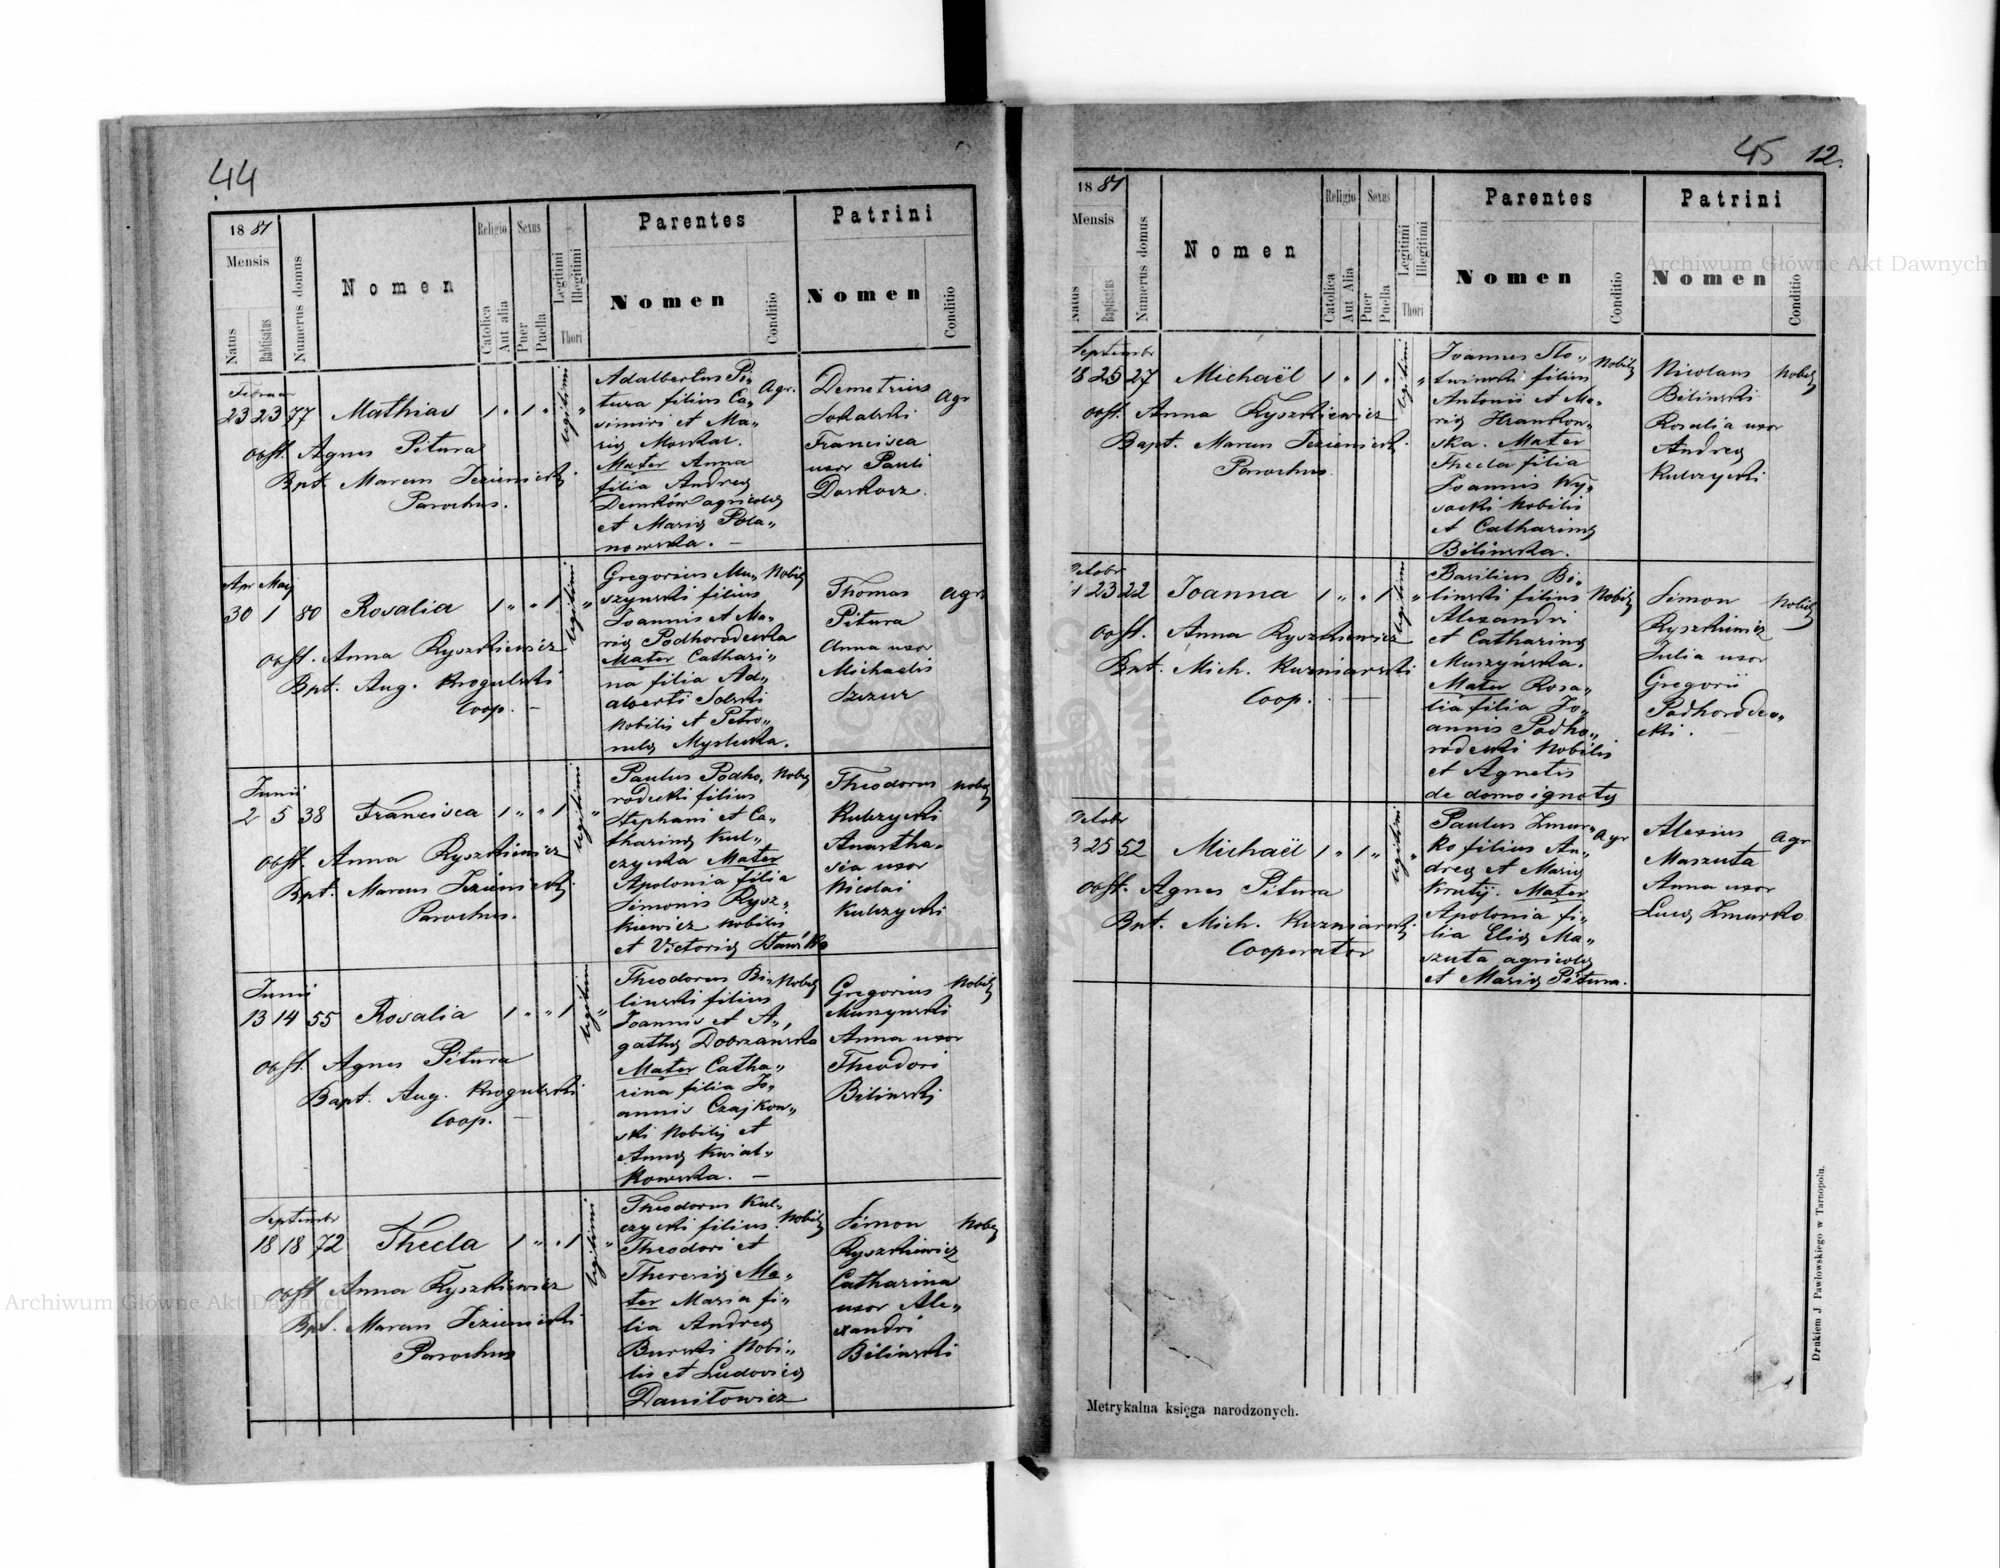 44
1881
Mensis
Natus
Babtisatus
Numerus domus
Nomen
Religio
Catholica
Aut alia
Sexus
Puer
Puella
Legitimi
Illegitimi
Thori
Parentes
Nomen
Conditio
Patrini
Nomen
Conditio
Februar
23 23 77 Mathias 1 " 1 " legitimi "
Obst. Agnes Pitura
Bpt. Marcus Jezienicki
Parochus.
Adalbertus Pi„
tura filius Ca„
simiri et Ma„
rię Moskal.
Mater Anna
filia Andreę
Demków agricolę
et Marię Pola„
nowska. —
Agr.
Demetrius
Sokalski
Francisca
uxor Pauli
Doskocz.
Agr
Apr Maj
30 1 80 Rosalia 1 " " 1 legitimi "
Obst. Anna Ryszkiewicz
Bpt. Aug. Rogulski
Coop. —
Gregorius Mu„
szynski filius
Joannis et Ma„
rię Podhorodewska
Mater Cathari„
na filia Ad„
alberti Solski
Nobilis et Petro„
nelę Myslucka.
Nobilis
Thomas
Pitura
Anna uxor
Michaelis
Szczur
agr.
Junii
2 5 38 Francisca 1 " " 1 legitimi "
Obst. Anna Ryszkiewicz
Bpt. Marcus Jezienicki
Parochus.
Paulus Podho„
rodecki filius
Stephani et Ca„
tharinę Kul„
czycka Mater
Apolonia filia
Simonis Rysz„
kiewicz Nobilis
et Victorię
Nobilis
Theodorus
Kulczycki
Anastha„
sia uxor
Nicolai
Kulczycki
Nobilis
Junii
13 14 55 Rosalia 1 " " 1 legitimi "
Obst. Agnes Pitura
Bapt. Aug. Rogulski
Coop. —
Theodorus Bi„
linski filius
Joannis et A„
gathę Dobrzanska
Mater Catha„
rina filia Jo„
annis Czajkow„
ski Nobilis et
Annę Kwiat„
kowska. —
Nobilis
Gregorius
Muszynski
Anna uxor
Theodori
Bilinski
Nobilis
Septembr
18 18 72 Thecla 1 " " 1 legitimi "
Obst. Anna Ryszkiewicz
Bpt. Marcus Jezienicki
Parochus
Theodorus Kul„
czycki filius
Theodori et
Theresię Ma„
ter Maria fi„
lia Andreę
Burski Nobi„
lis et Ludovicę
Daniłowicz
Nobilis
Simon
Ryszkiewicz
Catharina
uxor Ale„
xandri
Bilinski
Nobilis
45 12.
1881
Mensis
Natus
Baptisatus
Numerus domus
Nomen
Religio
Catolica
Aut Alia
Sexus
Puer
Puella
Legitimi
Illegitimi
Thori
Parentes
Nomen
Conditio
Patrini
Nomen
Conditio
Septembr
18 25 27 Michaël 1 " 1 " legitimi "
Obst. Anna Ryszkiewicz
Bapt. Marcus Jezienicki
Parochus
Joannes Sło„
twinski filius
Antonii et Ma„
rię Hrankow„
ska. Mater
Thecla filia
Joannis Wy„
socki Nobilis
et Catharinę
Bilinska.
Nobilis
Nicolaus
Bilinski
Rosalia uxor
Andreę
Kulczycki
Nobilis
23 22 Joanna 1 " " 1 legitimi "
Obst. Anna Ryszkiewicz
Bpt. Mich. Kuzniarski
Coop. —
Basilius Bi„
linski filius
Alexandri
et Catharinę
Muszynska.
Mater Rosa„
lia filia Jo„
annis Podho„
rodecki Nobilis
et Agnetis
de domo ignotę
Nobilis
Simon
Ryszkiewicz
Julia uxor
Gregorii
Podhorodec„
ki.
Nobilis
25 52 Michaël 1 " 1 " legitimi "
Obst. Agnes Pitura
Bpt. Mich. Kuzniarski
Cooperator
Paulus Zmur„
ko filius An„
dreę et Marię
Krutÿ. Mater
Apolonia fi„
lia Elię Ma„
szuta agricolę
et Marię Pitura.
Agr
Alexius
Maszuta
Anna uxor
Lucę Zmurko
agr
Metrykalna księga narodzonych.
Drukiem J. Pawłowskiego w Tarnopolu.
Archiwum Główne Akt Dawnych
Archiwum Główne Akt Dawnych